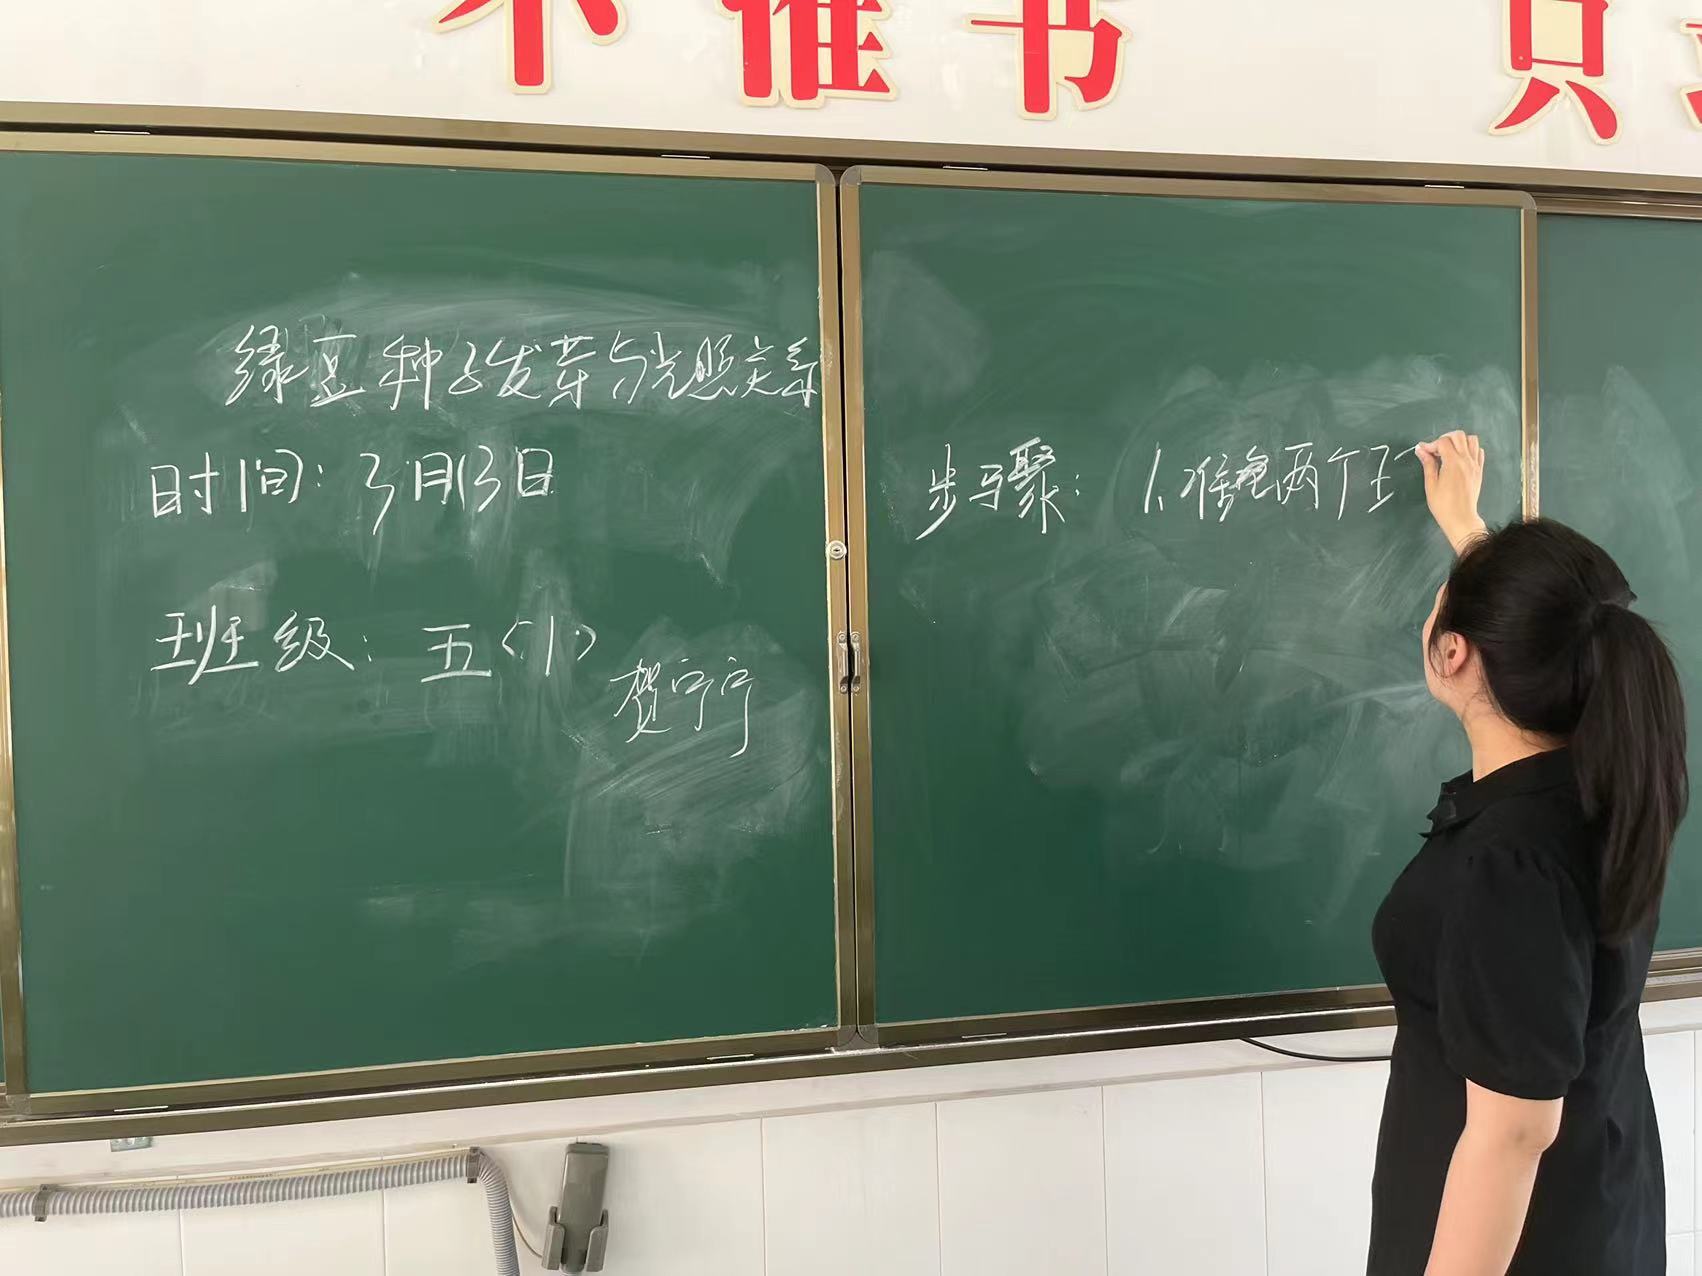 不唯书 只
绿豆种子发芽与光照关系
时间：3月13日
班级：五〈1〉
贺宁宁
步骤：1.准备两个